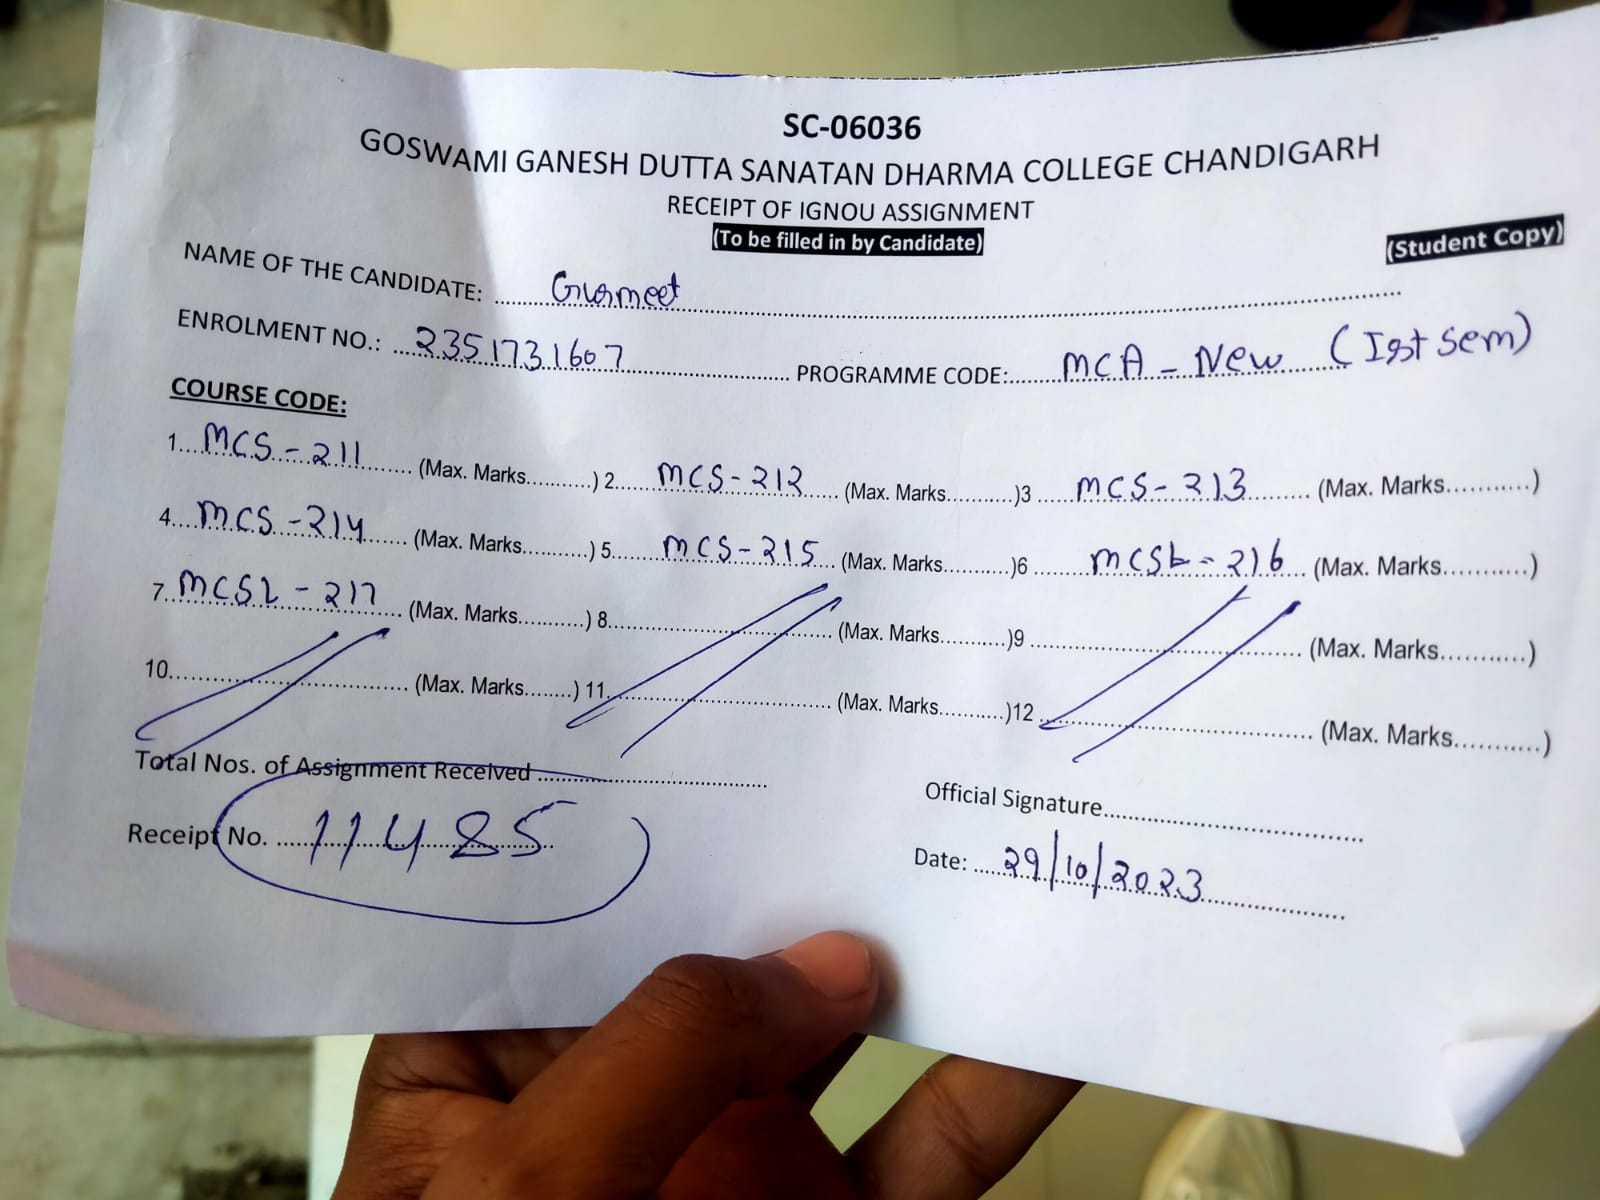 SC-06036
GOSWAMI GANESH DUTTA SANATAN DHARMA COLLEGE CHANDIGARH
RECEIPT OF IGNOU ASSIGNMENT
(To be filled in by Candidate)
(Student Copy)
NAME OF THE CANDIDATE: Gurmeet
ENROLMENT NO.: 2351731607 PROGRAMME CODE: MCA - New (Ist sem)
COURSE CODE:
1 MCS - 211 (Max. Marks...........) 2 MCS - 212 (Max. Marks...........) 3 MCS - 213 (Max. Marks...........)
4 MCS - 214 (Max. Marks...........) 5 MCS - 215 (Max. Marks...........) 6 MCSL - 216 (Max. Marks...........)
7. MCSL - 217 (Max. Marks...........) 8 (Max. Marks...........) 9 (Max. Marks...........)
10 (Max. Marks........) 11 (Max. Marks...........) 12 (Max. Marks...........)
Total Nos. of Assignment Received
Official Signature
Receipt No. 11485
Date: 29/10/2023